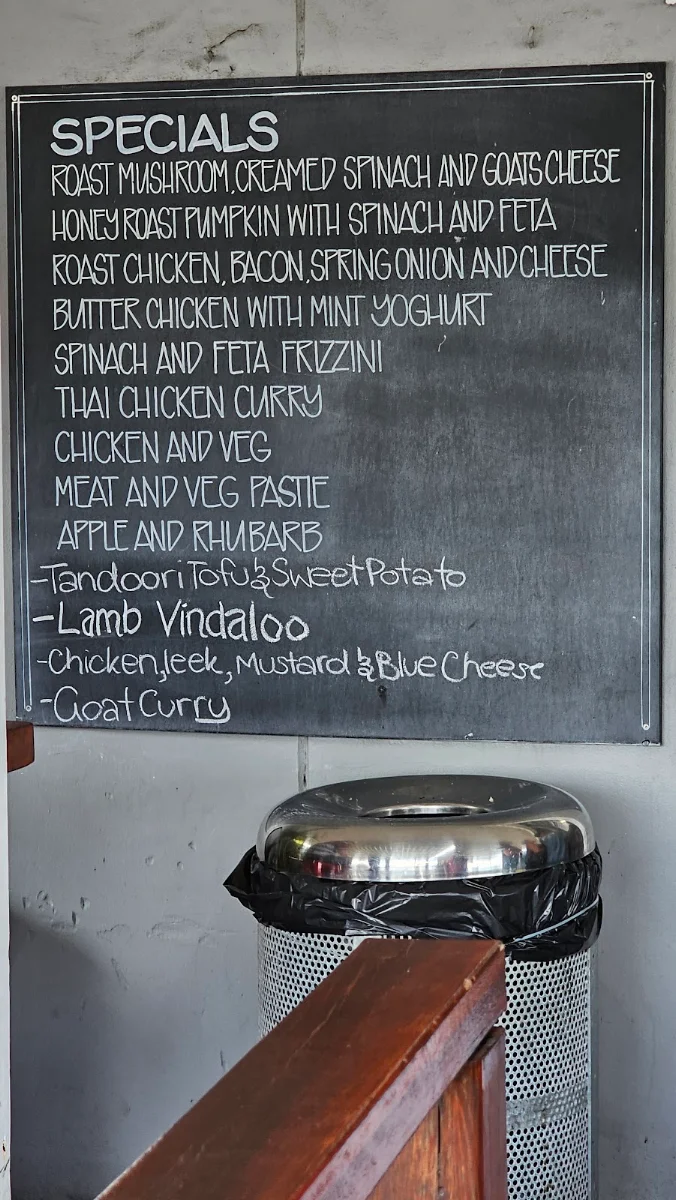 SPECIALS
ROAST MUSHROOM, CREAMED SPINACH AND GOATS CHEESE
HONEY ROAST PUMPKIN WITH SPINACH AND FETA
ROAST CHICKEN, BACON, SPRING ONION AND CHEESE
BUTTER CHICKEN WITH MINT YOGHURT
SPINACH AND FETA FRIZZINI
THAI CHICKEN CURRY
CHICKEN AND VEG
MEAT AND VEG PASTIE
APPLE AND RHUBARB
-Tandoori Tofu & Sweet Potato
-Lamb Vindaloo
-Chicken, leek, Mustard & Blue Cheese
-Goat Curry